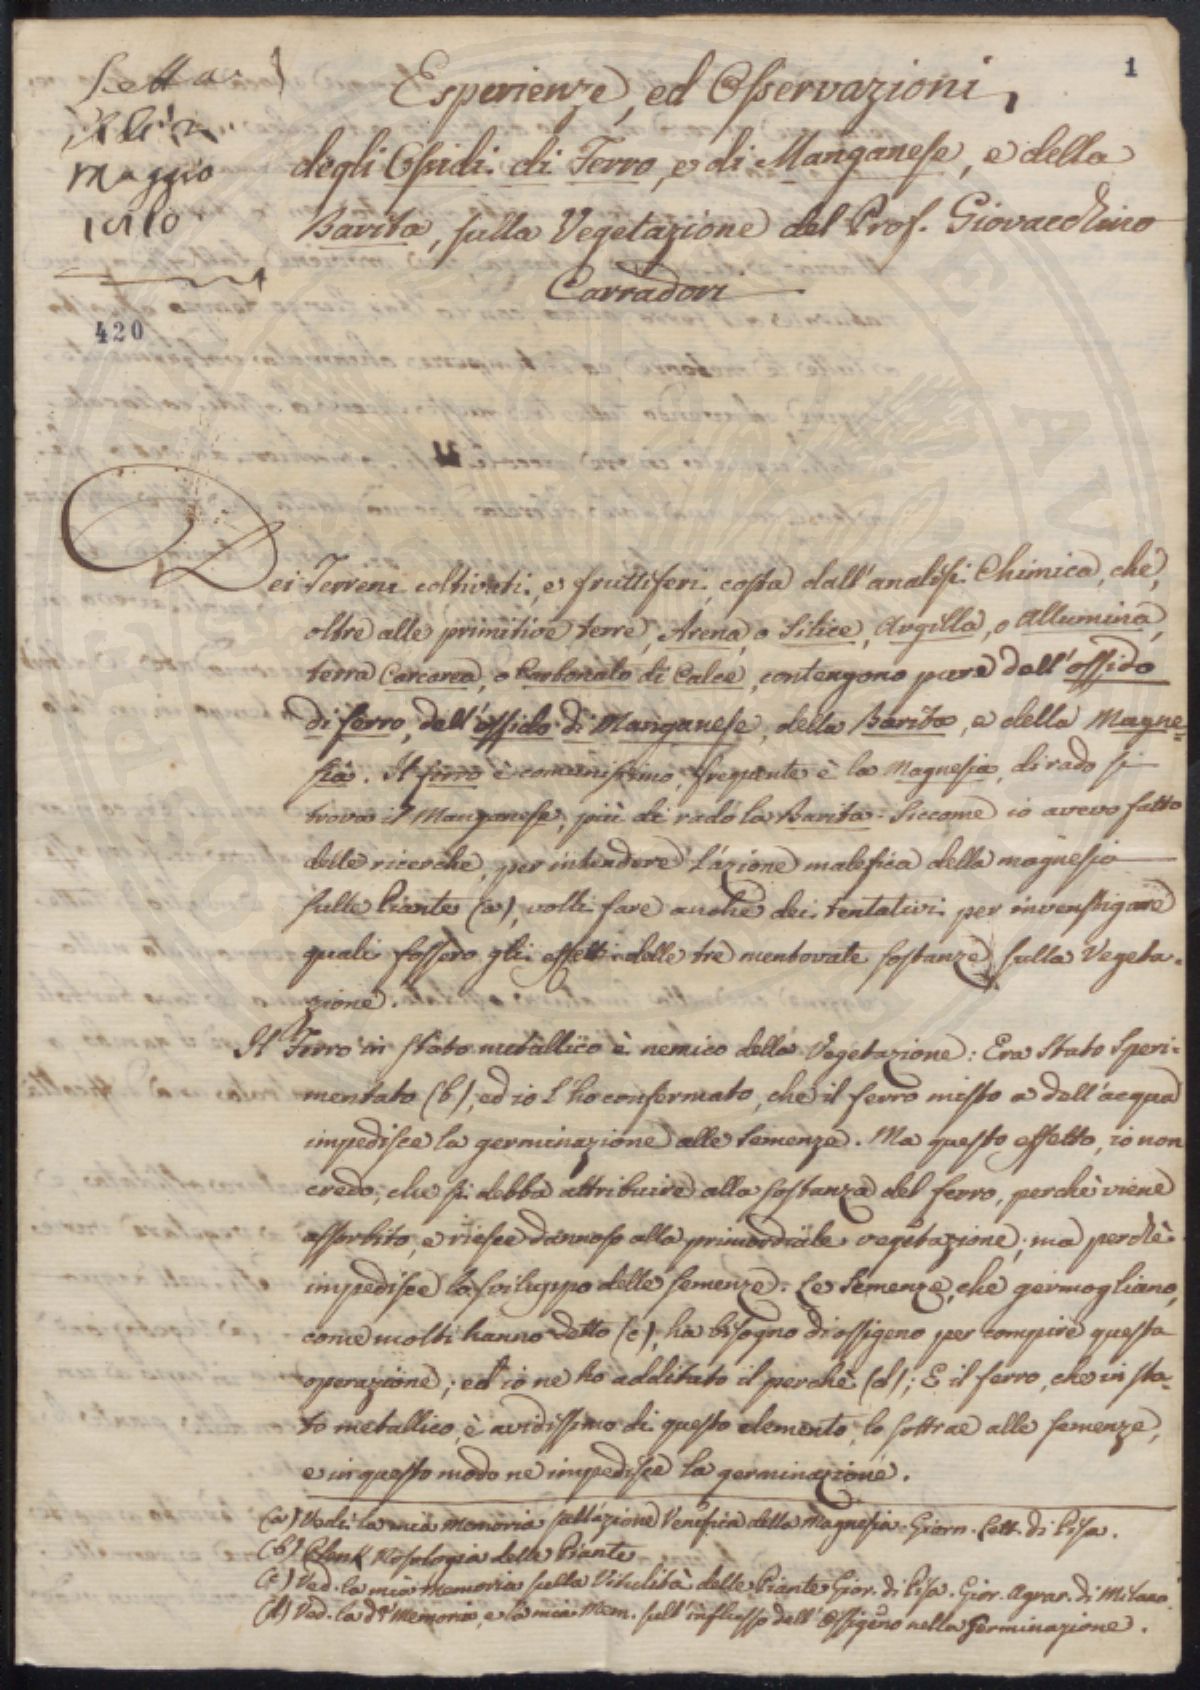 1
Letta
maggio
1810
420
Esperienze, ed Osservazioni,
degli Ossidi di Ferro, e di Manganese, e della
Barita, sulla Vegetazione del Prof. Giovacchino
Carradori
Dei Terreni coltivati, e fruttiferi, costa dall'analisi Chimica, che,
oltre alle primitive terre, Arena, o Silice, Argilla, o Allumina,
terra Carcarea, o Carbonato di Calce, contengono pure dell'ossido
di ferro, dell'ossido di Manganese, della Barita, e della Magne=
sia. Il ferro è comunissimo, frequente è la Magnesia, di rado si
trova il Manganese, più di rado la Barita. Siccome io avevo fatto
delle ricerche, per intendere l'azione malefica della magnesia
sulle Piante (a), volli fare anche dei tentativi per investigare
quali fossero gli effetti delle tre mentovate sostanze sulla Vegeta=
zione.
Il Ferro in stato metallico è nemico della Vegetazione: Era stato Speri=
mentato (b), ed io l'ho confermato, che il ferro misto a dell'acqua
impedisce la germinazione alle Semenze. Ma questo effetto, io non
credo, che si debba attribuire alla sostanza del ferro, perchè viene
assorbito, e riesce dannoso alla primordiale vegetazione; ma perchè
impedisce lo sviluppo delle semenze. Le Semenze, che germogliano,
come molti hanno detto (c), ha bisogno di ossigeno per compire questa
operazione; ed io ne ho additato il perchè (d); E il ferro, che in sta=
to metallico, è avidissimo di questo elemento, lo sottrae alle semenze,
e in questo modo ne impedisce la germinazione.
(a) Vedi la mia Memoria sull'azione Venefica della Magnesia. Giorn. Lett. di Pisa.
(b) Plenk Nosologia delle Piante
(c) Ved. la mia memoria sulla Vitalità delle Piante Gior. di Pisa. Gior. Agrar. di Milano
(d) Ved. la dª Memoria, e la mia Mem. sull'influsso dell'Ossigeno nella Germinazione.